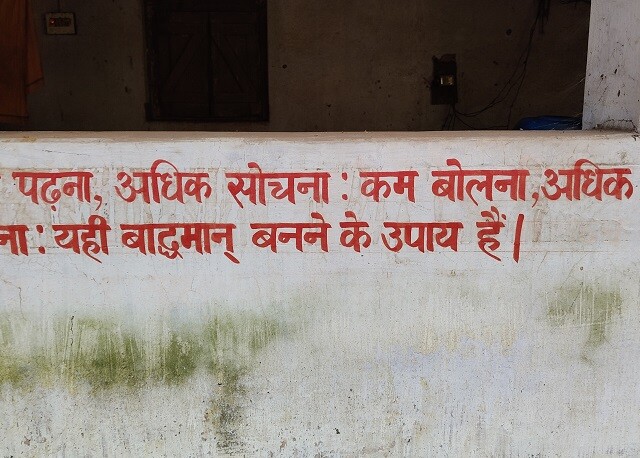 पढ़ना, अधिक सोचना : कम बोलना, अधिक
ना : यही बाद्धमान् बनने के उपाय हैं।